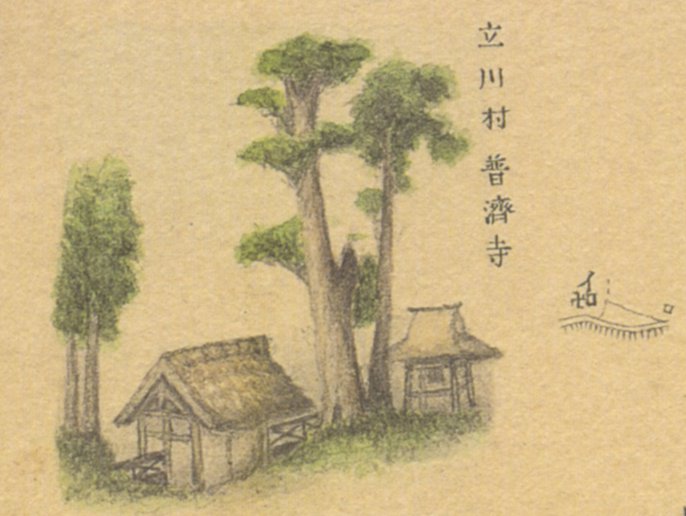 立川村 普濟寺